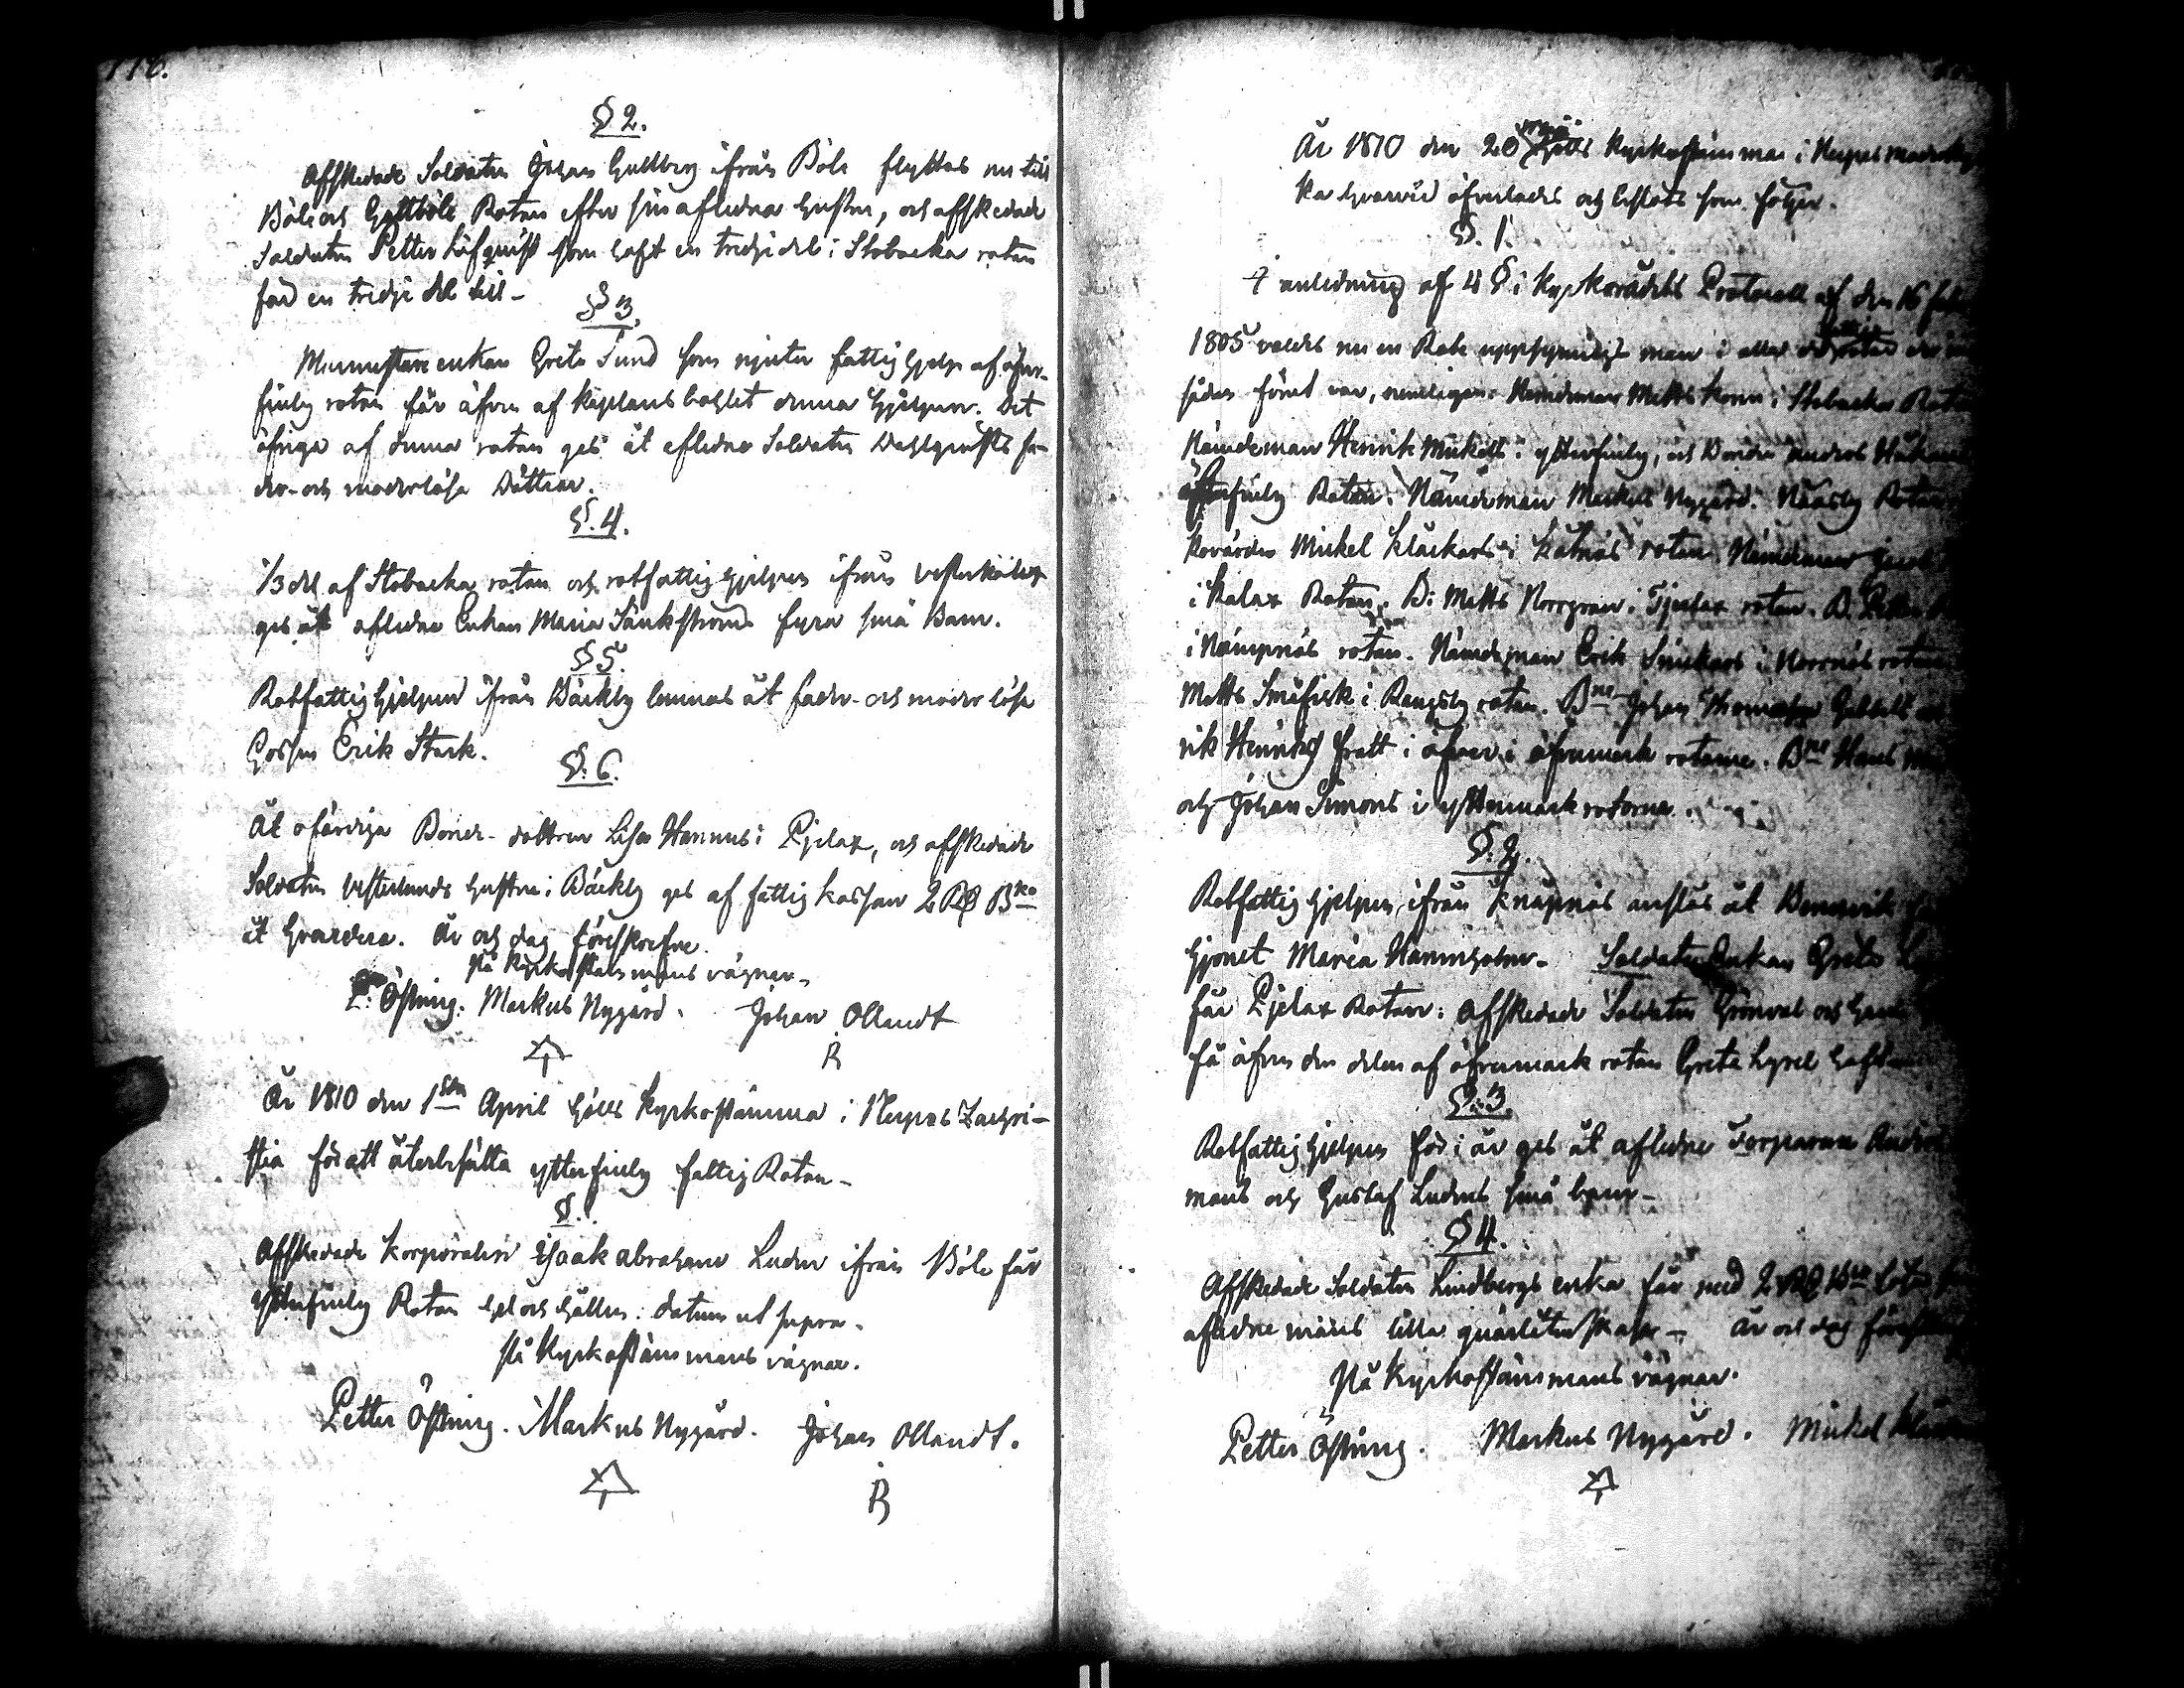 116.
§ 2.
Afskedade Soldaten Johan Gullberg ifrån Böle flyttas nu till
Böle och Gottböle Rotan efter sin afledna hustru, och afskedade
Soldaten Petter Löfquist som haft en tredje del i Stobacka rotan
får en tredje del till -
§ 3.
Munnstare enkan Greta Sund som njuter fattighjelp af öfver-
finby rotan får äfven af Kaplans bohlet denna hjelpen. Det
öfriga af denna rotan ges åt afledne Soldaten Dahlquists fa-
der- och moderlösa Döttrar.
§. 4.
1/3 del af Stobacka rotan och rotfattighjelpen ifrån
ges åt afledne Enkan Maria Tankströms fyra små Barn.
§ 5.
Rotfattighjelpen ifrån Bäckby lemnas åt fader- och moderlösa
Gossen Erik Stark.
§. 6.
Åt ofärdiga Bonde-dottren Lisa Hannus i Pjelax, och afskedade
Soldaten Vesterlunds hustru i Bäckby ges af fattig kassan 2 Rd Bko
åt hvardera. År och dag föreskrefne.
På Kyrkostämmans vägnar -
P. Östring. Markus Nygård. Johan Ollandt
R
År 1810 den 1sta April hölls Kyrkostämma i Nerpes Sachri-
stia för att återbesätta ytterfinby fattig Rotan -
§. 1.
Afskedade Korporalen Isaak Abraham Ludn ifrån Böle får
Ytterfinby Rotan hel och hållen. datum ut supra.
På Kyrkostämmans vägnar.
Petter Östring. Markus Nygård. Johan Ollandt.
R
År 1810 den 20 Maji hölls Kyrkostämma i Nerpes moderkyr
ka hvarvid öfverlades och beslöts som följer.
§. 1.
I anledning af 4 § i Kyrkorådets Protocoll af den 16
1805 valdes nu en Rote uppsyningsman i alla
sedan förut var, nemligen: Nämdeman Matts i Stobacka
Nämdeman Henrik Mickels i ytterfinby, och Bonden Anders
öfverfinby Rotan. Nämdeman Markus Nygård. Näsby
Kovärden Mickel Klåckars i Kåtnäs rotan. Nämdeman
i Kalax Rotan. B: Matts Norrgran i Tjerlax rotan. B: Petter
i Nämpnäs rotan. Nämdeman Erik Snickars i Norrnäs rotan
Matts Småfisk i Rangsby rotan. Bne Johan Thomasson
rik Henriks Fratt i öfver i öfvermark rotarne. Bne Hans
och Johan Simons i yttermark rotorna.
§. 2.
Rotfattighjelpen ifrån Knåpnäs anslås åt
hjonet Maria Hannholm. Soldats Enkan Greta
får Pjelax Rotan: Afskedade Soldaten Grönval och
få äfven den delen af öfvermark rotan Greta Lyrel haft
§. 3.
Rotfattighjelpen för i år ges åt afledne Torparen
mans och Gustaf Ludns små barn -
§ 4.
Afskedade Soldaten Lindbergs enka får med 2 Rd
afledne mans lilla quarlåtenskap - År och dag
På Kyrkostämmans vägnar.
Petter Östring. Markus Nygård. Mickel